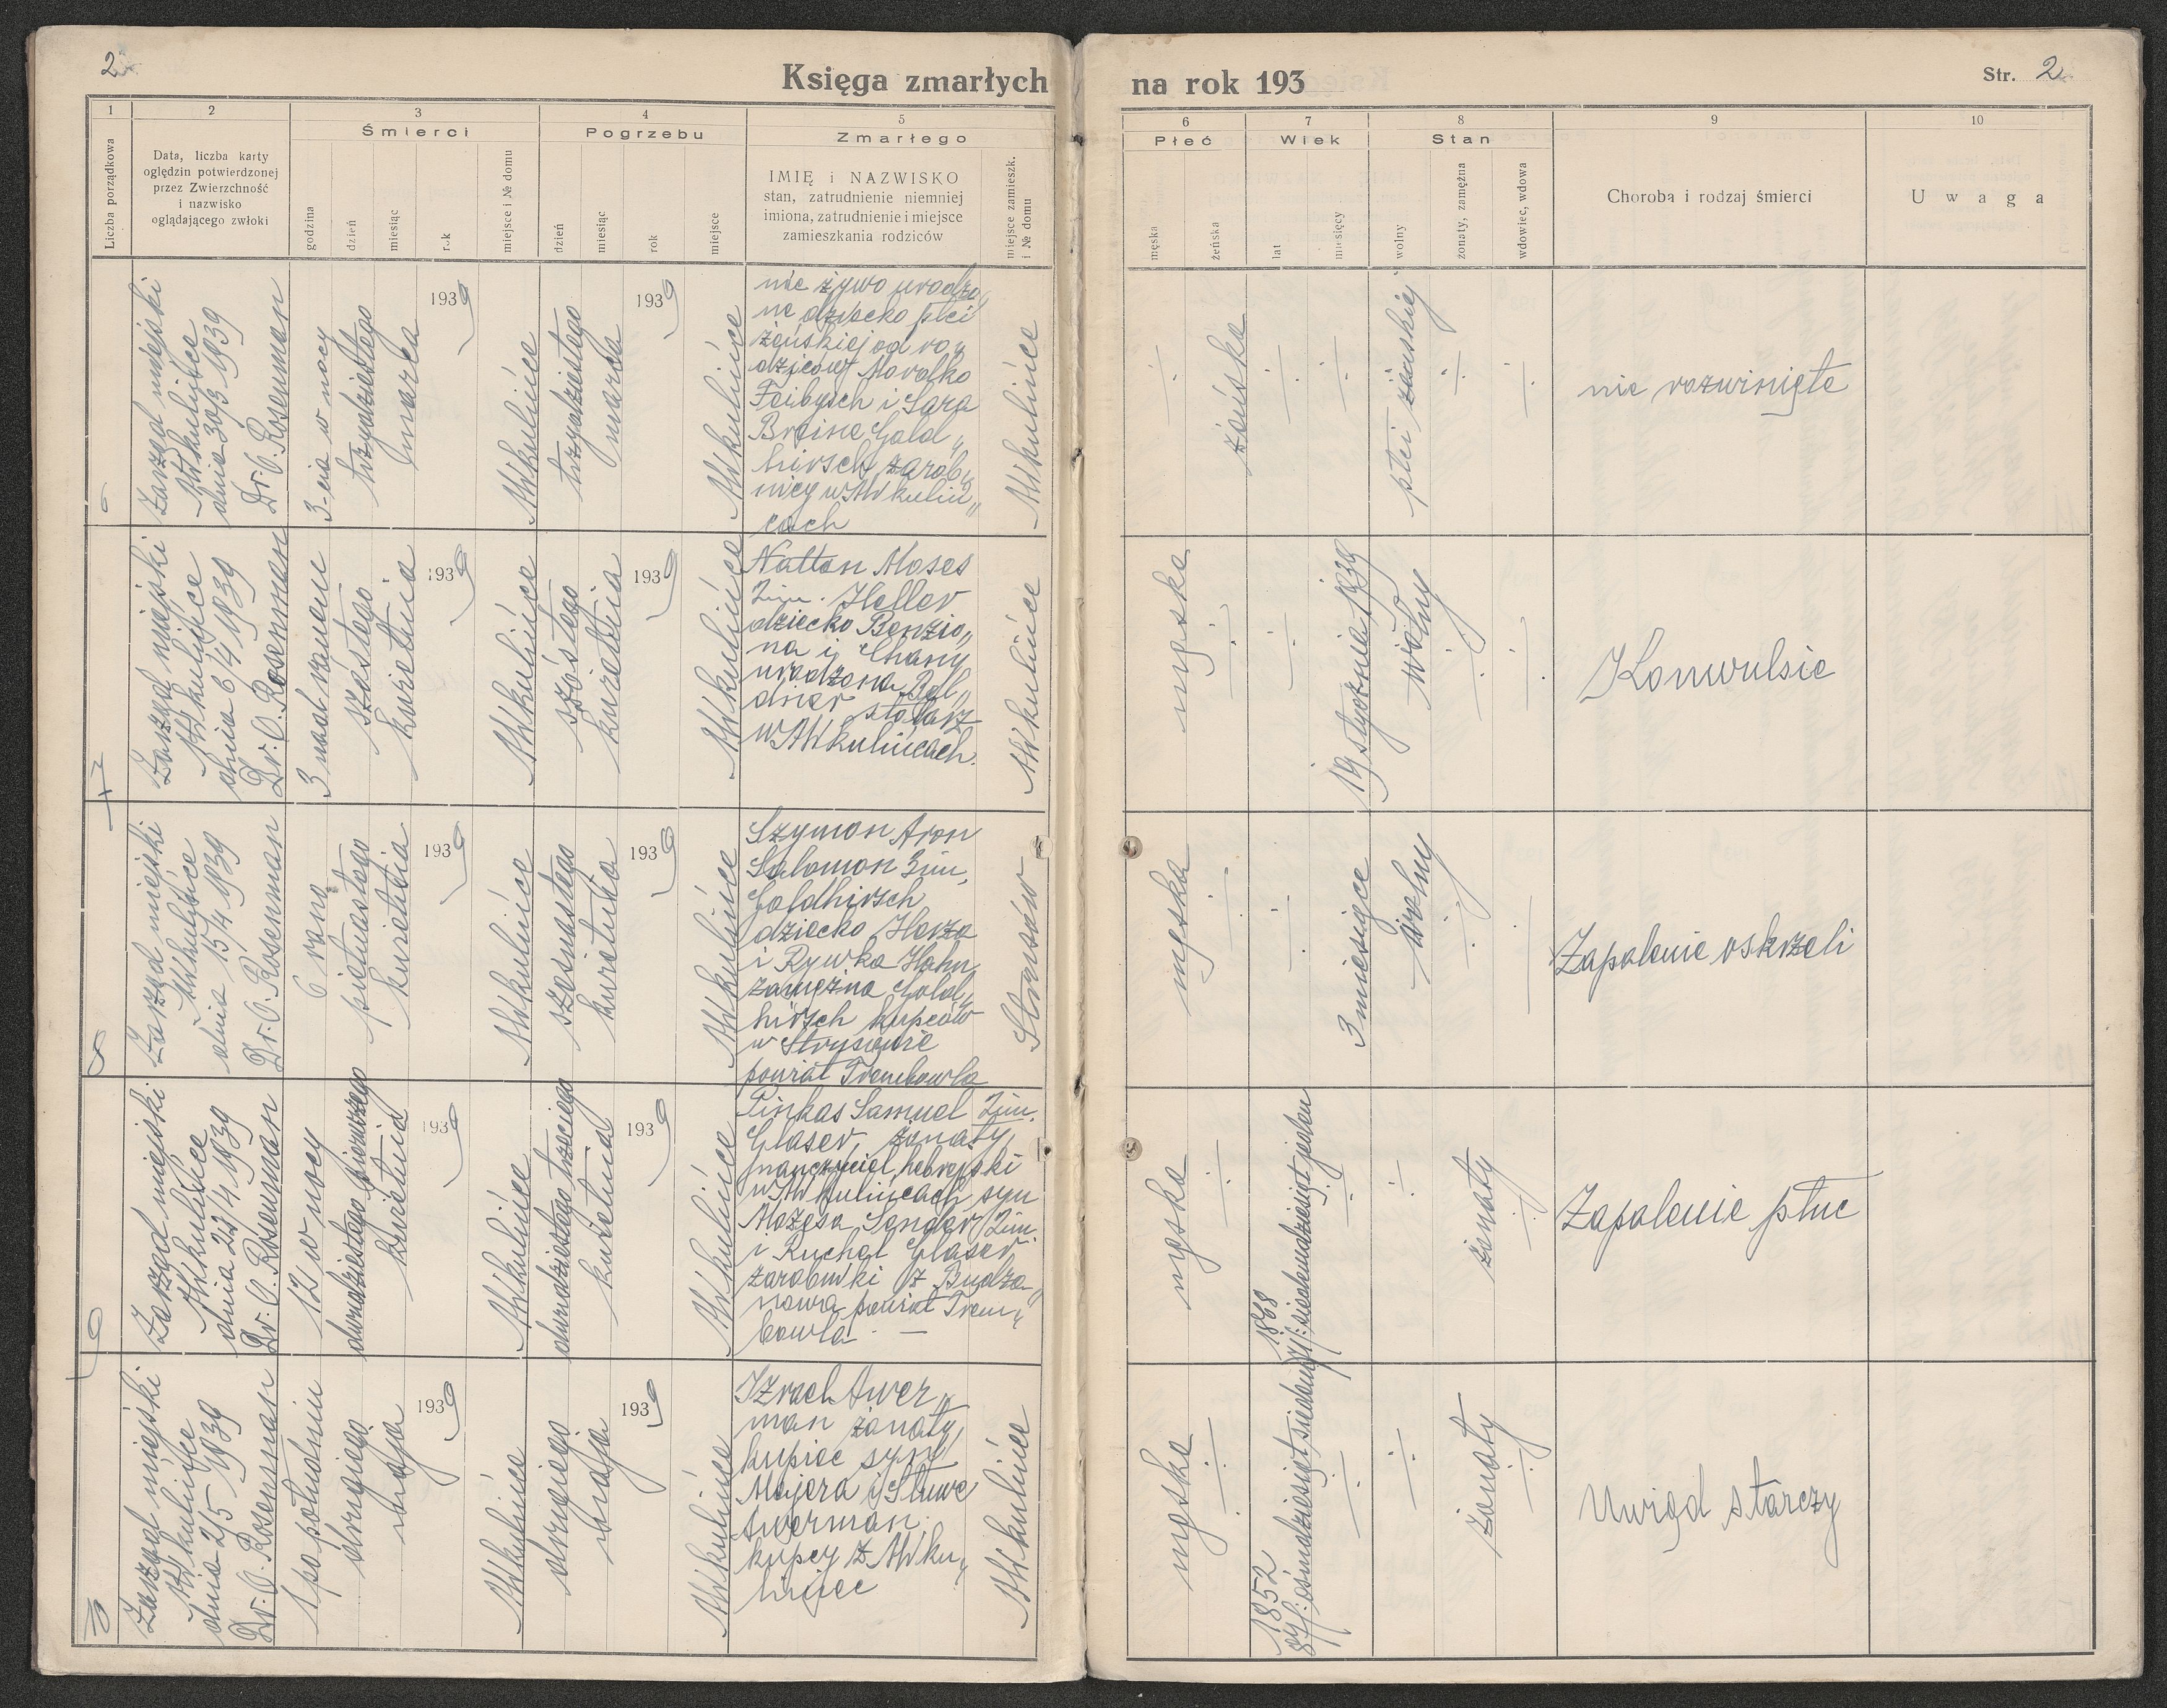 2
Księga zmarłych na rok 193
Str. 2
1
2
3
4
5
6
7
8
9
10
Liczba porządkowa
Data, liczba karty
oględzin potwierdzonej
przez Zwierzchność
i nazwisko
oglądającego zwłoki
Śmierci
godzina
dzień
miesiąc
rok
miejsce i № domu
Pogrzebu
dzień
miesiąc
rok
miejsce
Zmarłego
IMIĘ i NAZWISKO
stan, zatrudnienie niemniej
imiona, zatrudnienie i miejsce
zamieszkania rodziców
miejsce zamieszk.
i № domu
Płeć
męska
żeńska
Wiek
lat
miesięcy
Stan
wolny
żonaty, zamężna
wdowiec, wdowa
Choroba i rodzaj śmierci
Uwaga
6
Zarząd miejski
Mikulińce
dnia 30/3 1939
Dr. O. Rosenman
3-cia w nocy
trzydziestego
marca
1939
Mikulińce
trzydziestego
marca
1939
Mikulińce
nie żywo urodzo„
ne dziecko płci
żeńskiej od ro„
dziców
Feibysch i Sara
Breine Gold„
hirsch zarob„
nicy w Mikuliń„
cach
Mikulińce
÷
żeńska
÷
÷
płci żeńskiej
÷
÷
nie rozwinięte
7
Zarząd miejski
Mikulińce
dnia 6/4 1939
Dr. O. Rosenman
3 nad ranem
szóstego
kwietnia
1939
Mikulińce
szóstego
kwietnia
1939
Mikulińce
Nattan Moses
2im. Heller
dziecko Benzio„
na i Chany
urodzona
stolarz
w Mikulińcach.
Mikulińce
męska
÷
÷
19 stycznia 1939
wolny
÷
÷
Konwulsie
8
Zarząd miejski
Mikulińce
dnia 15/4 1939
Dr. O. Rosenman
6 rano
piętnastego
kwietnia
1939
Mikulińce
szesnastego
kwietnia
1939
Mikulińce
Szymon Aron
Salomon 3im,
Goldhirsch
dziecko Herza
i Rywka Hahn
zamężna Gold„
hirsch kupców
w Strusowie
powiat Trembowla
Strusów
męska
÷
÷
3 miesiące
wolny
÷
÷
Zapalenie oskrzeli
9
Zarząd miejski
Mikulińce
dnia 23/4 1939
Dr. O. Rosenman
12 w nocy
dwudziestego pierwszego
kwietnia
1939
Mikulińce
dwudziestego trzeciego
kwietnia
1939
Mikulińce
Pinkas Samuel 2im.
Glaser, żonaty,
nauczyciel hebrejski
w Mikulińcach syn
Mojżesa, Sender/2im.
i Ruchel Glaser
zarobniki z Budza„
nowa powiat Trem„
bowla. —
męska
÷
1868
71/:siedemdziesiąt jeden
÷
÷
żonaty
÷
Zapalenie płuc
10
Zarząd miejski
Mikulińce
dnia 2/5 1939
Dr. O. Rosenman
1 po południu
drugiego
maja
1939
Mikulińce
drugiego
maja
1939
Mikulińce
Izrael Awer„
man żonaty,
kupiec syn
Majera i Sluwe
Awerman
kupcy z Miku„
liniec
Mikulińce
męska
÷
1852
87/:ośmdziesiąt siedem
÷
÷
żonaty
÷
Uwiąd starczy